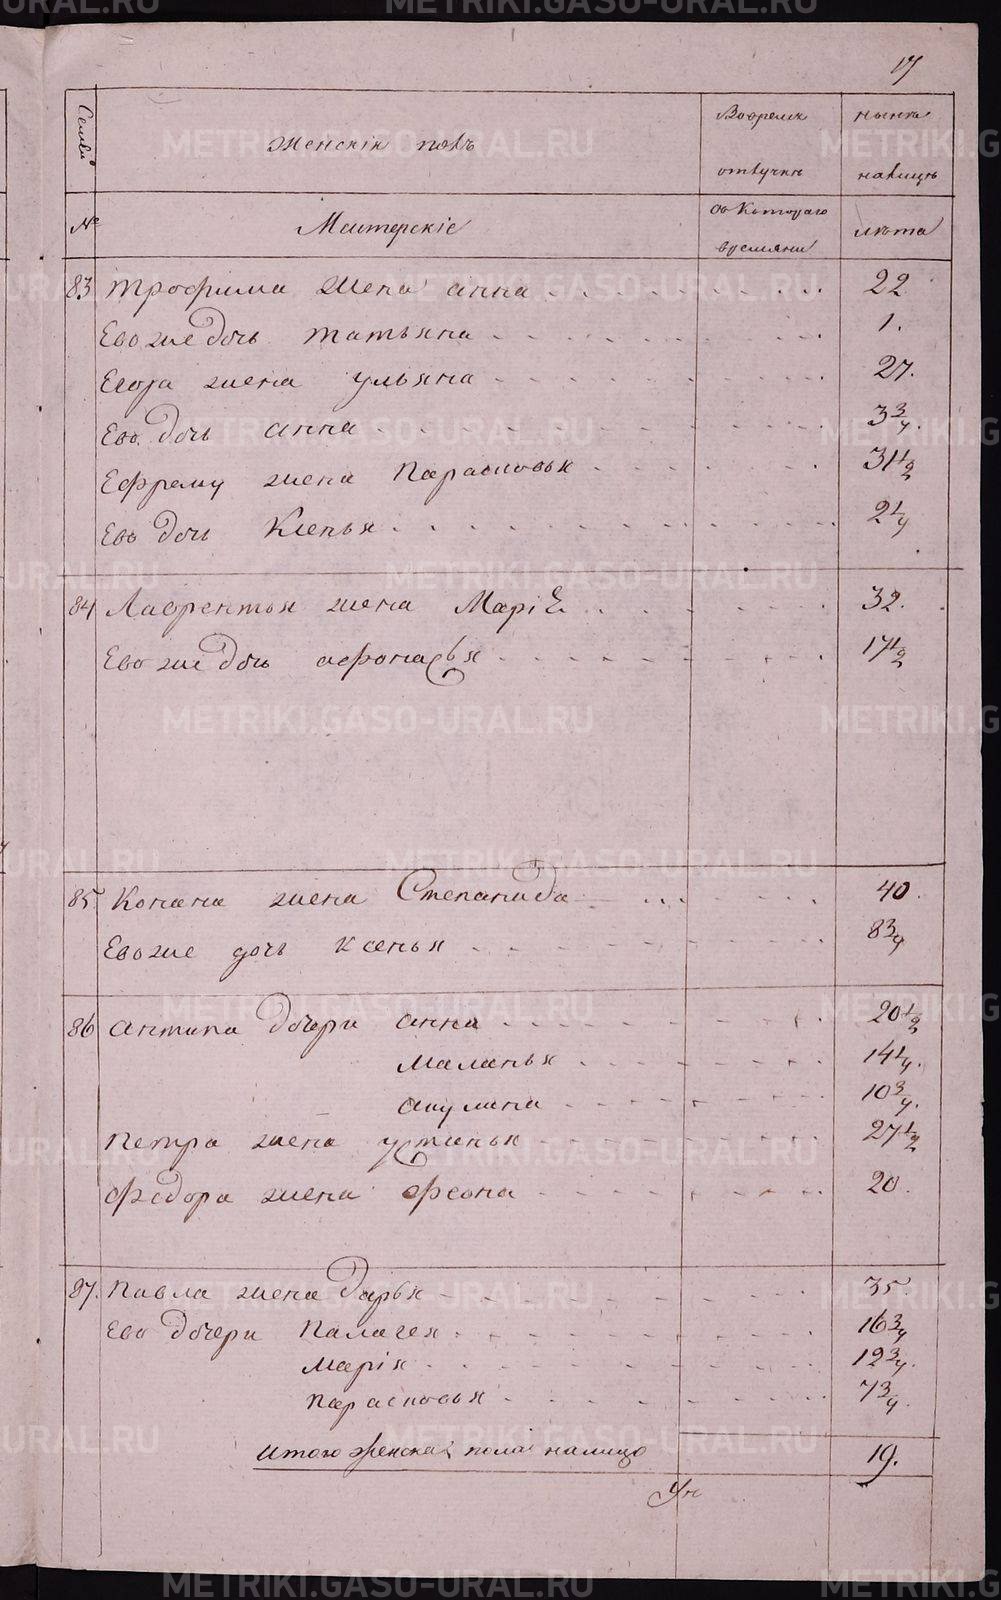 17
Семьи
Женскiй полъ
Вовремяе
отлучке
ныне
налице
№
Мастерскiе
съ Котораго
времяни
лѣта
83 трофима жена анна 22
Ево же дочь татьяна 1.
Егора жена ульяна 27.
Ево дочь анна 3 3/4.
Ефрему жена Парасковья 31 1/2
Ево дочь Ксенья 2 1/4
84 Лаврентья жена Марiя 32.
Ево же дочь афонасья 17 1/2
85 Конана жена Степанида 40.
Ево же дочь ксенья 8 3/4
86 антипа дочери анна 20 1/2
Маланья 14 1/4.
акулина 10 3/4.
Петра жена устинья 27 1/2
Федора жена фiона 20.
87. Павла жена дарья 35.
Ево дочери Палагея 16 3/4
Марiя 12 3/4.
Парасковья 7 3/4.
итого женска пола налицо 19.